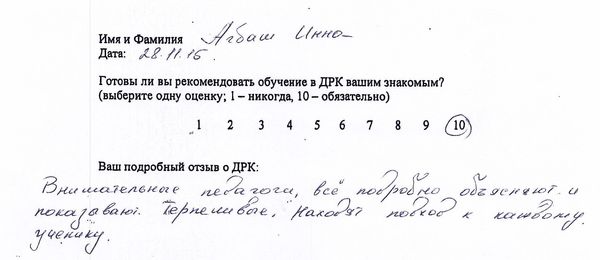 Имя и Фамилия Агбаш Инна
Дата: 28.11.16.
Готовы ли вы рекомендовать обучение в ДРК вашим знакомым?
(выберите одну оценку; 1 – никогда, 10 – обязательно)
1 2 3 4 5 6 7 8 9 10
Ваш подробный отзыв о ДРК:
Внимательные педагоги, всё подробно объясняют и
показывают. Терпеливые, находят подход к каждому
ученику.